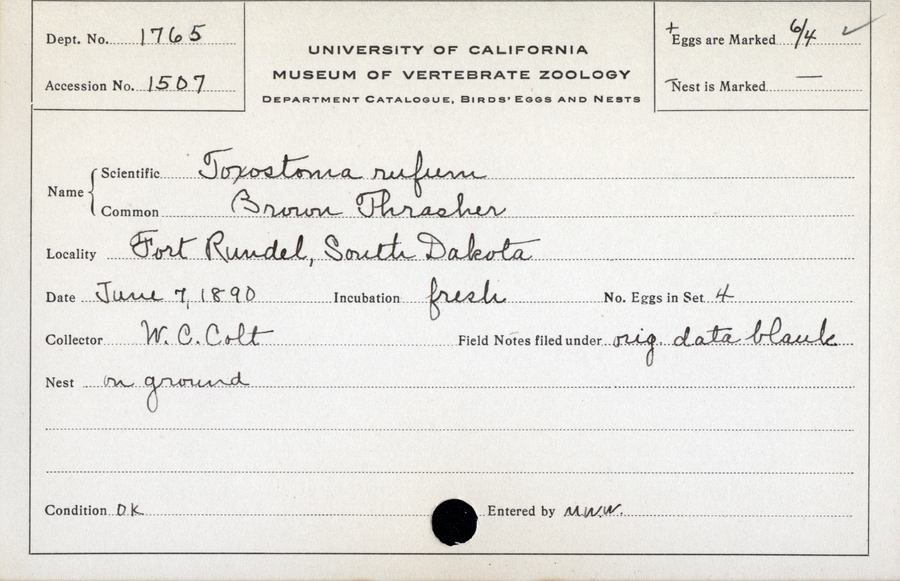 Dept. No. 1765
Accession No. 1507
UNIVERSITY OF CALIFORNIA
MUSEUM OF VERTEBRATE ZOOLOGY
DEPARTMENT CATALOGUE, BIRDS' EGGS AND NESTS
+Eggs are Marked 6/4 ✓
Nest is Marked —
Name
Scientific Toxostoma rufum
Common Brown Thrasher
Locality Fort Rundel, South Dakota
Date June 7, 1890 Incubation fresh No. Eggs in Set 4
Collector W. C. Colt Field Notes filed under orig. data blank
Nest on ground
Condition OK Entered by MWW.